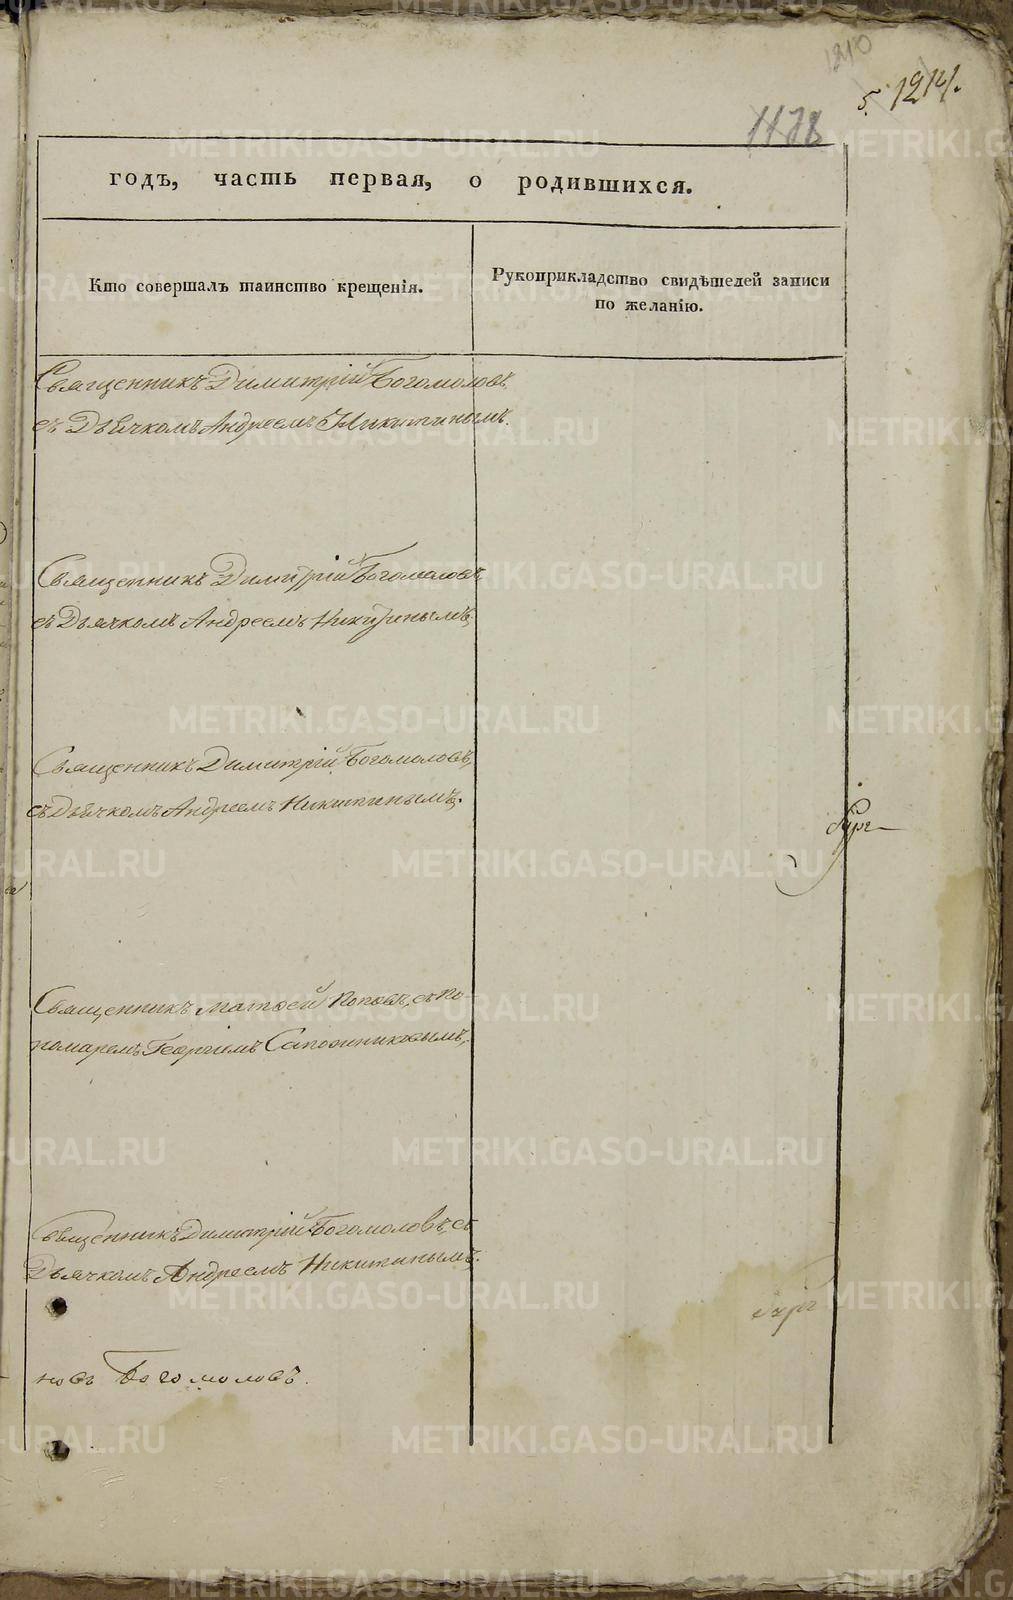 1210
5. 1214.
1178
годъ, часть первая, о родившихся.
Кто совершалъ таинство крещенія.
Рукоприкладство свидѣтелей записи
по желанію.
Священникъ Димитрій Богомоловъ,
съ Дьячкомъ Андреемъ Никитинымъ.
Священникъ Димитрій Богомоловъ,
съ Дьячкомъ Андреемъ Никитинымъ,
Священникъ Димитрій Богомоловъ,
съ Дьячкомъ Андреемъ Никитинымъ.
Священникъ Матѳей Поповъ, съ По-
номаремъ Георгіемъ Сапожниковымъ,
Священникъ Димитрій Богомоловъ, съ
Дьячкомъ Андреемъ Никитинымъ.
новъ Богомоловъ.
METRIKI.GASO-URAL.RU